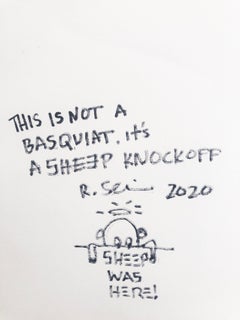 THIS IS NOT A
BASQUIAT. It's
A SHEEP KNOCKOFF
2020
SHEEP
WAS
HERE!